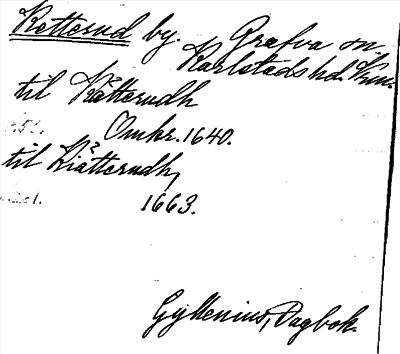 Ketterud by. Grafva sn.
Karlstads hd. Vrm.
til Kätterudh
Omkr. 1640.
til Kiätterudh,
1663.
Gyllenius, Dagbok.